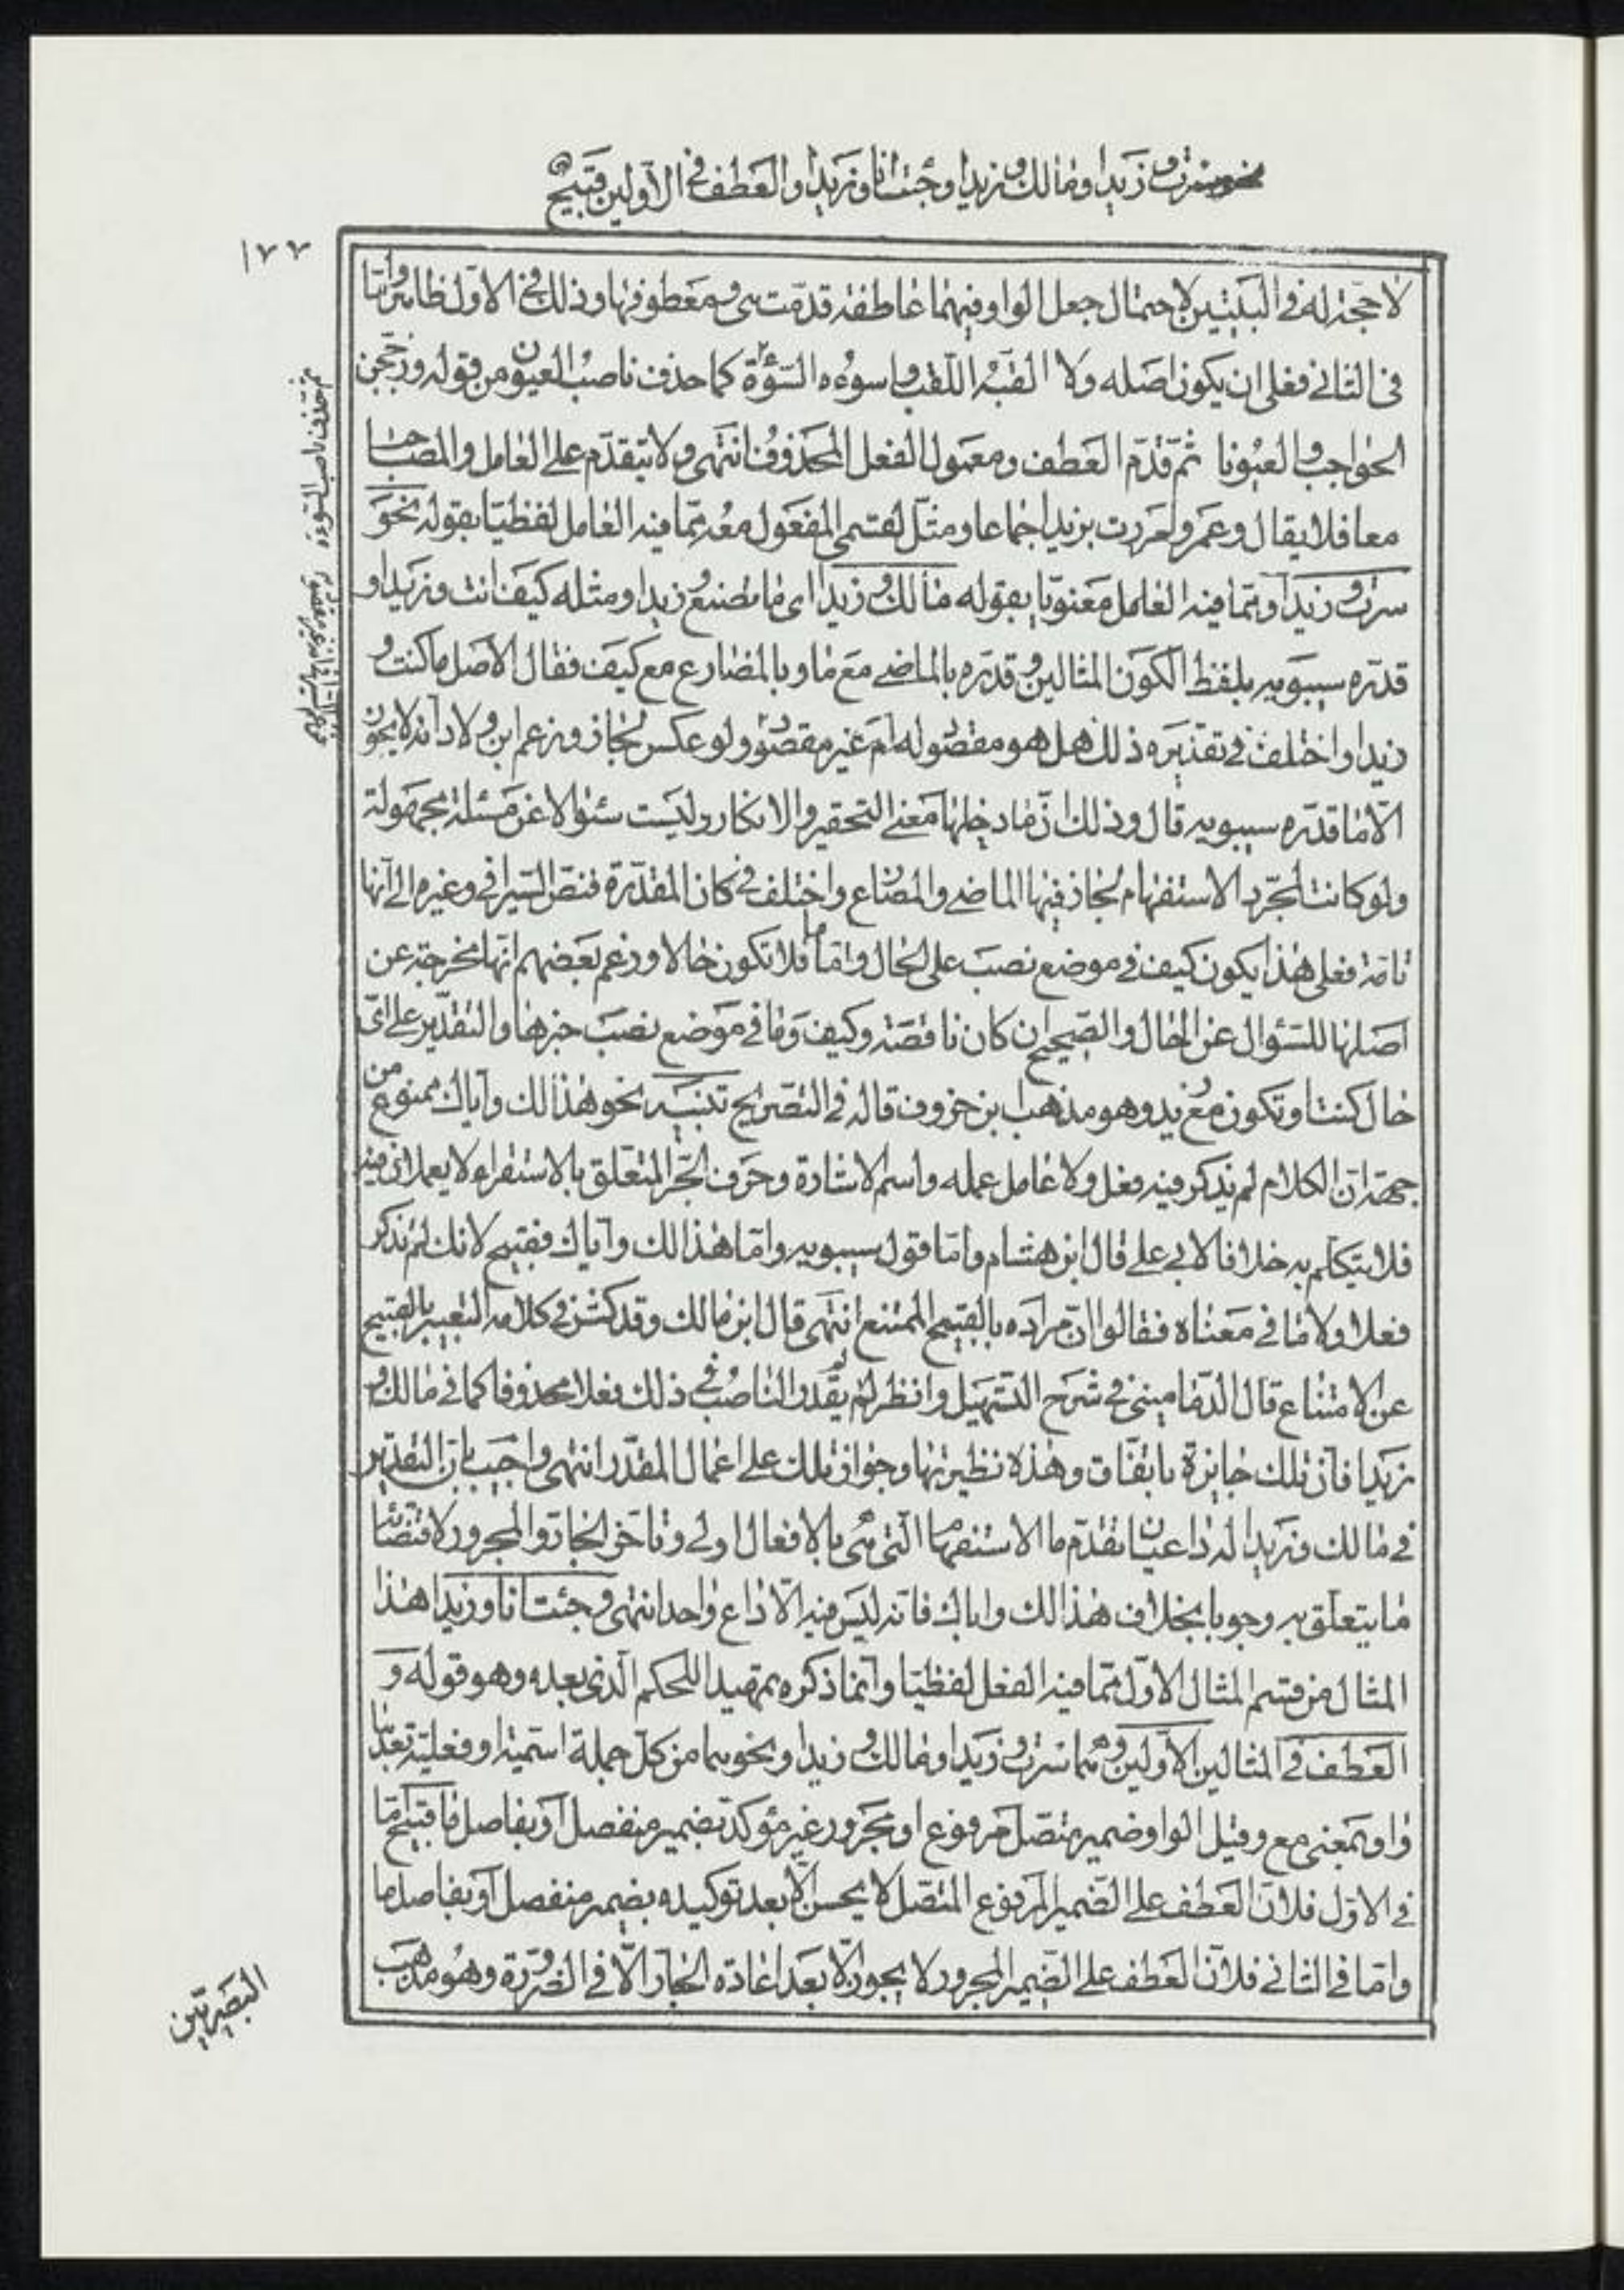 نحو سرت و زيدا و مالك و زيدا و جئت انا و زيدا و العطف في الاولين قبيح
١٧٧
لا حجّة له في البيتين لاحتمال جعل الواو فيهما عاطفة قدّمت هى و معطوفها و ذلك في الاول ظاهر و امّا
في الثاني فعلى ان يكون اصله و لا القبه اللقب و اسوءه السّوءة كما حذف ناصب العيون من قوله و زججن
الحواجب و العيونا ثم قدّم العطف و معمول الفعل المحذوف انتهى و لا يتقدّم على العامل و المصاحب
معا فلا يقال و عمرو لمررت بزيد اجماعا و مثّل لقسمى المفعول معه ممّا فيه العامل لفظيّا بقوله نحو
سرت و زيدا و ممّا فيه العامل معنويّا بقوله مالك و زيدا اى ما تصنع و زيدا و مثله كيف انت و زيدا و
قدّره سيبويه بلفظ الكون المثالين و قدّره بالماضى مع ما و بالمضارع مع كيف فقال الاصل ما كنت و
زيدا و اختلف في تقديره ذلك هل هو مقصود له ام غير مقصود و لو عكس لجاز و زعم ابن ولاد انه لا يجوز
الّا ما قدّره سيبويه قال و ذلك انّ ما دخلها معنى التحقير و الانكار و ليست سئوالا عن مسئلة مجهولة
و لو كانت لمجّرد الاستفهام لجاز فيها الماضى و المضارع و اختلف في كان المقدّرة فنصّ السّيرافي و غيره الى انّها
تامّة فعلى هذا يكون كيف في موضع نصب على الحال و امّا ما فلا تكون حالا و زعم بعضهم انّها مخرجة عن
اصلها للسّئوال عن الحال و الصّحيح ان كان ناقصة و كيف و ما في موضع نصب خبرها و التقدير على اىّ
حال كنت او تكون مع زيد و هو مذهب ابن خروف قاله في التصريح تنبيه نحو هذا لك و اباك ممنوع من
جهة انّ الكلام لم يذكر فيه فعل و لا عامل عمله و اسم الاشارة و حرف الجّر المتعلق بالاستقرار لا يعملان فيه
فلا يتكلّم به خلافا لابى على قال ابن هشام و امّا قول سيبويه و امّا هذا لك و اباك فقبيح لانك لم تذكر
فعلا و لا ما في معناه فقالوا انّ مراده بالقبيح الممتنع انتهى قال ابن مالك و قد كثر في كلامه التعبير بالقبيح
عن الامتناع قال الدّمامينى في شرح التسهيل و انظر لم لم يقدر الناصب في ذلك فعلا محذوفا كما في مالك و
زيدا فانّ تلك جايزة باتّفاق و هذه نظيرتها و جواز تلك على اعمال المقدّر انتهى و اجيب بانّ التقدير
في مالك و زيدا له داعيان تقدّم ما الاستفهام الّتى هى بالافعال اولى و تأخّر الجارّ و المجرور لاقتضائه
ما يتعلّق به وجوبا بخلاف هذا لك و اباك فانّه ليس فيه الّا داع واحد انتهى و جئت انا و زيدا هذا
المثال من قسم المثال الاوّل ممّا فيه الفعل لفظيّا و انّما ذكره تمهيدا للحكم الّذى بعده و هو قوله و
العطف في المثالين الاوّلين و هما سرت و زيدا و مالك و زيدا و نحوهما من كلّ جملة اسميّة او فعليّة بعدها
واو بمعنى مع و قبل الواو ضمير متّصل مرفوع او مجرور غير مؤكّد بضمير منفصل او بفاصل ما قبيح امّا
في الاوّل فلانّ العطف على الضّمير المرفوع المتّصل لا يحسن الّا بعد توكيده بضمير منفصل او بفاصل ما
و امّا في الثاني فلانّ العطف على الضّمير المجرور لا يجوز الّا بعد اعادة الجارّ الّا في الضرورة و هو مذهب
البصريّين
ثم حذف ناصب السّوءة